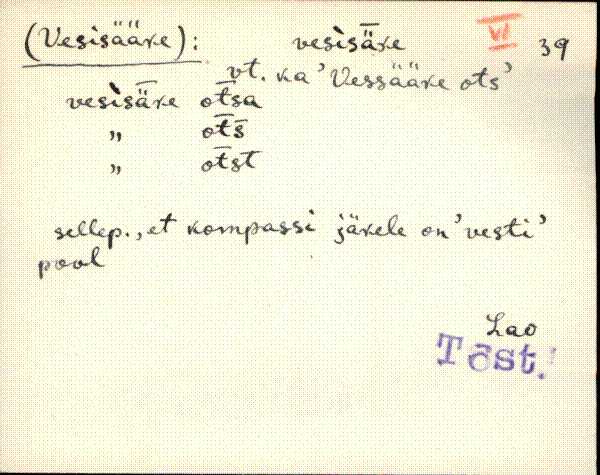 (Vesisääre): vesìsä̅re VI 39
vt. ka 'Vessääre ots'
vesìsä̅re ot̅sa
" ot̅s̅
" ot̅st
sellep., et kompassi järele on 'vesti'
pool
Lao
Tõst.